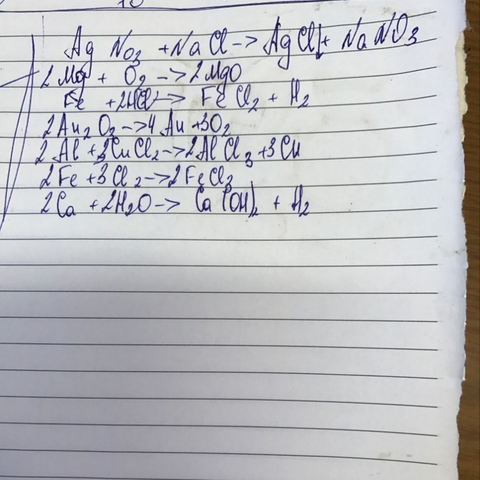 Ag NO₃ + NaCl -> AgCl↓ + NaNO₃
2 Mg + O₂ -> 2 MgO
Fe + 2HCl -> FeCl₂ + H₂
2 Au₂O₃ -> 4 Au + 3O₂
2 Al + 3CuCl₂ -> 2AlCl₃ + 3Cu
2 Fe + 3Cl₂ -> 2FeCl₃
2 Ca + 2H₂O -> Ca(OH)₂ + H₂